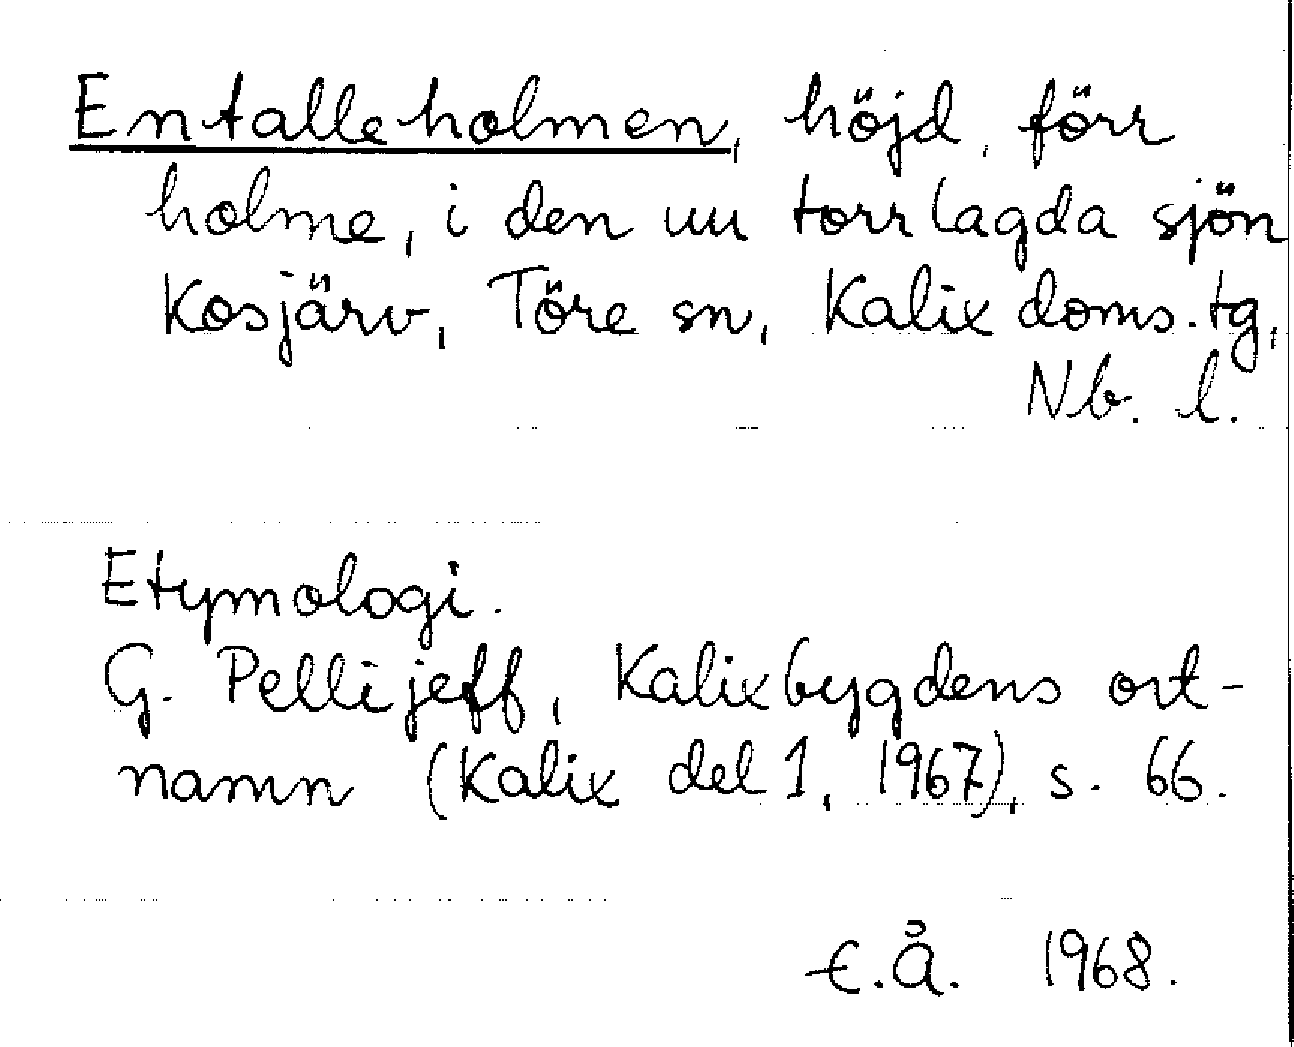 Entalleholmen, höjd, förr
holme, i den nu torrlagda sjön
Kosjärv, Töre sn, Kalix doms.tg,
Nb. l.
Etymologi.
G. Pellijeff, Kalixbygdens ort-
namn (Kalix del 1, 1967), s. 66.
E.Å. 1968.